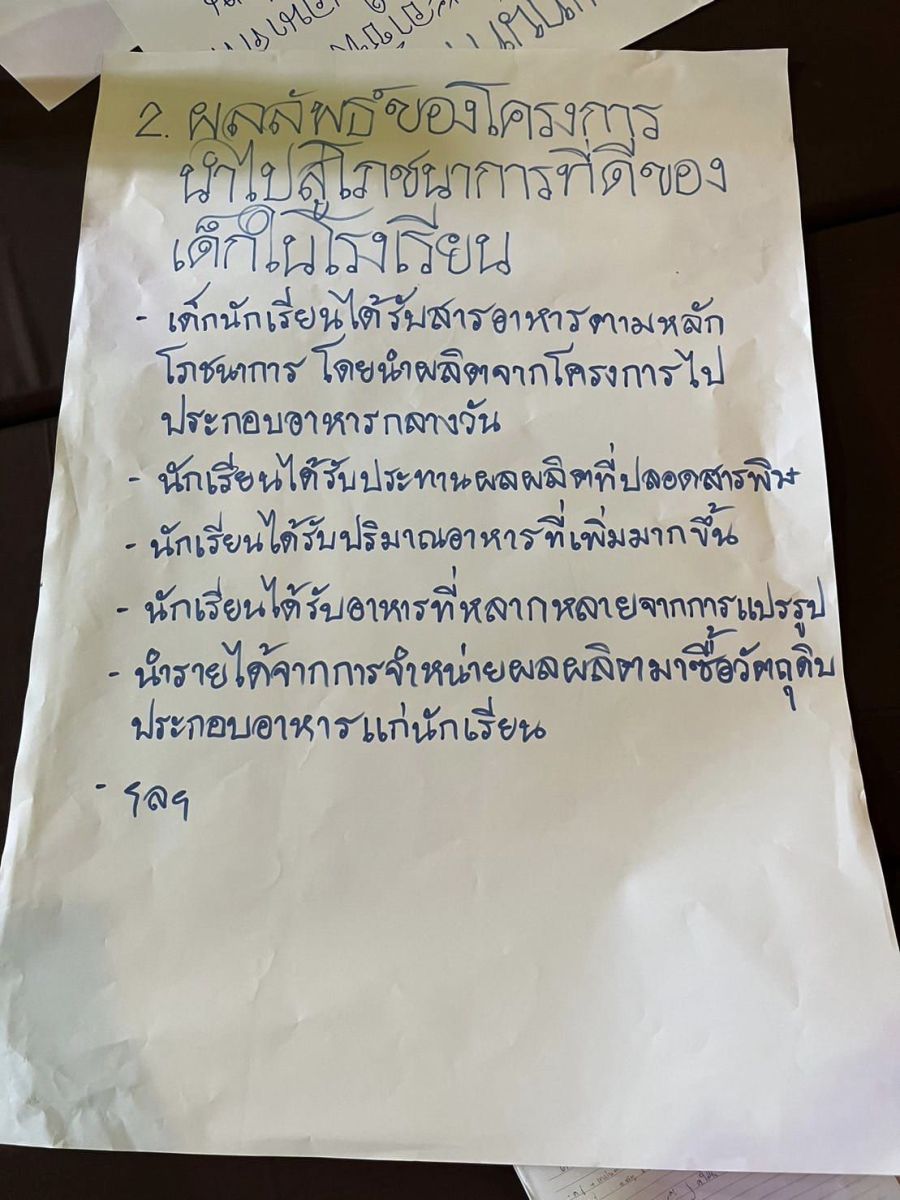 2. ผลลัพธ์ของโครงการ
นำไปสู่โภชนาการที่ดีของ
เด็กในโรงเรียน
- เด็กนักเรียนได้รับสารอาหารตามหลัก
โภชนาการ โดยนำผลิตจากโครงการไป
ประกอบอาหารกลางวัน
- นักเรียนได้รับประทานผลผลิตที่ปลอดสารพิษ
- นักเรียนได้รับปริมาณอาหารที่เพิ่มมากขึ้น
- นักเรียนได้รับอาหารที่หลากหลายจากการแปรรูป
- นำรายได้จากการจำหน่ายผลผลิตมาซื้อวัตถุดิบ
ประกอบอาหารแก่นักเรียน
- ฯลฯ